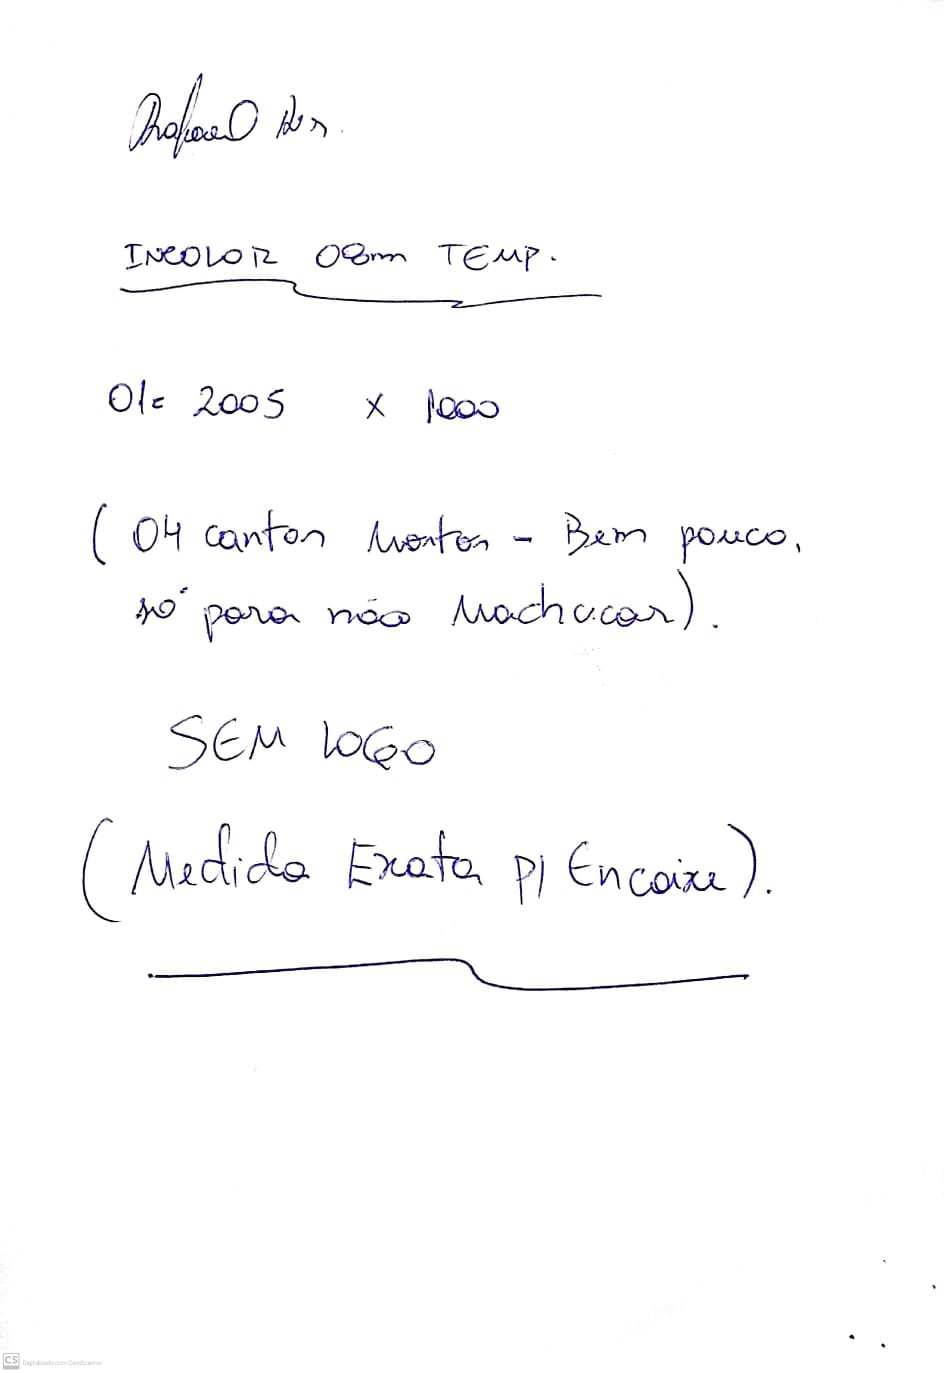 Rafael
INCOLOR 08mm TEMP.
01= 2005 x 1000
(04 cantos mortos - Bem pouco,
só para não Machucar).
SEM LOGO
(Medida Exata p/ Encaixe).
CS Digitalizado com CamScanner